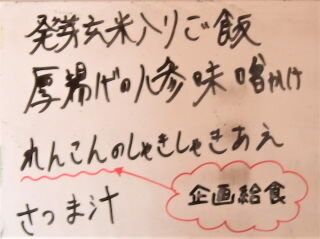 発芽玄米入りご飯
厚揚げの人参味噌かけ
れんこんのしゃきしゃきあえ
企画給食
さつま汁